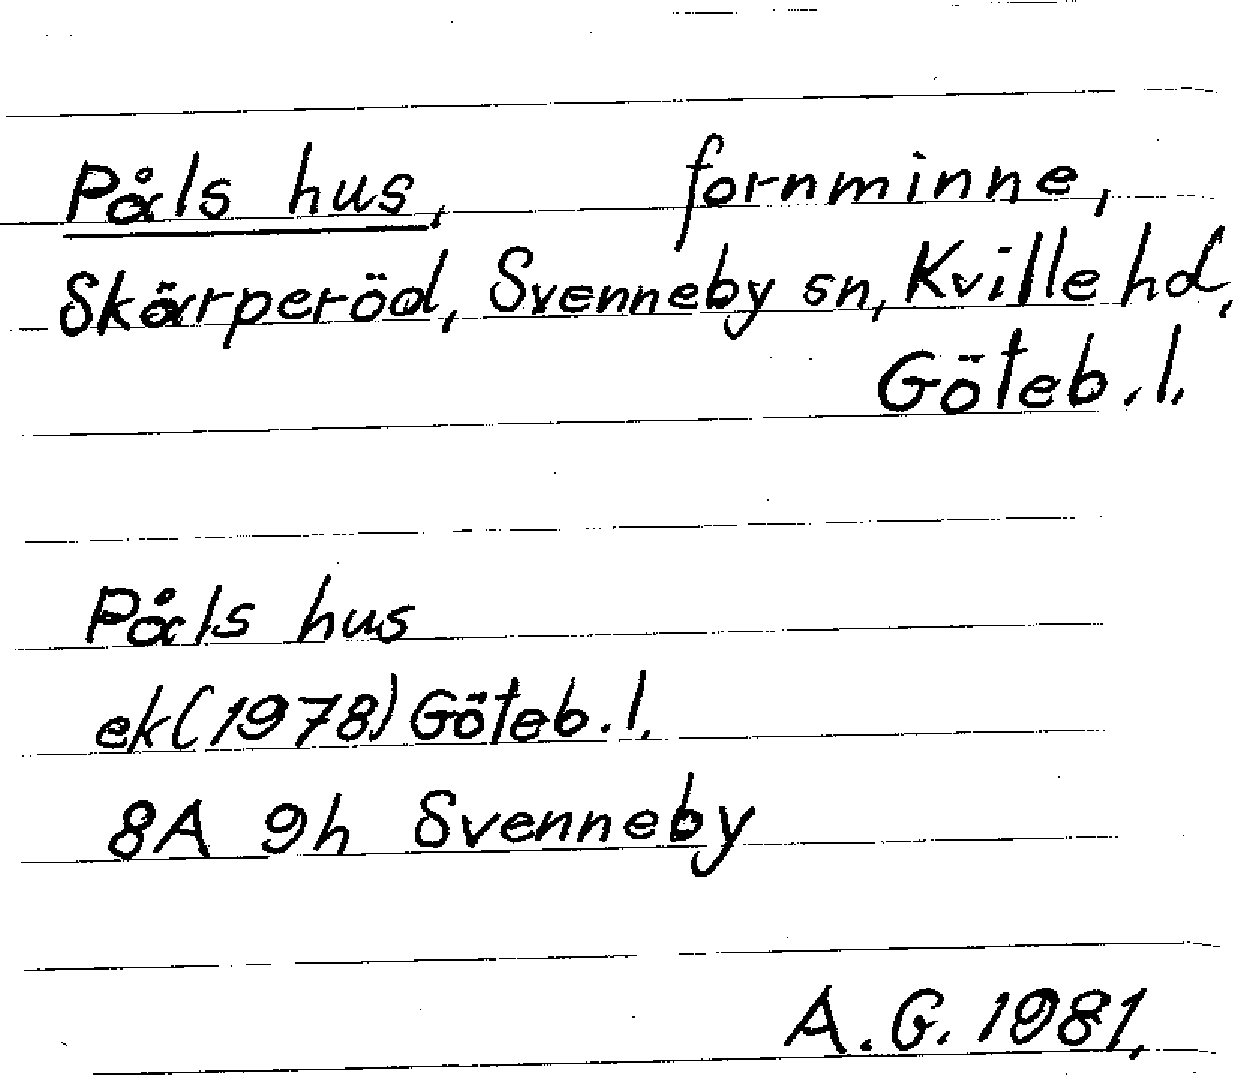 Påls hus, fornminne,
Skärperöd, Svenneby sn, Kville hd,
Göteb. l.
Påls hus
ek (1978) Göteb. l.
8A 9h Svenneby
A. G. 1981.